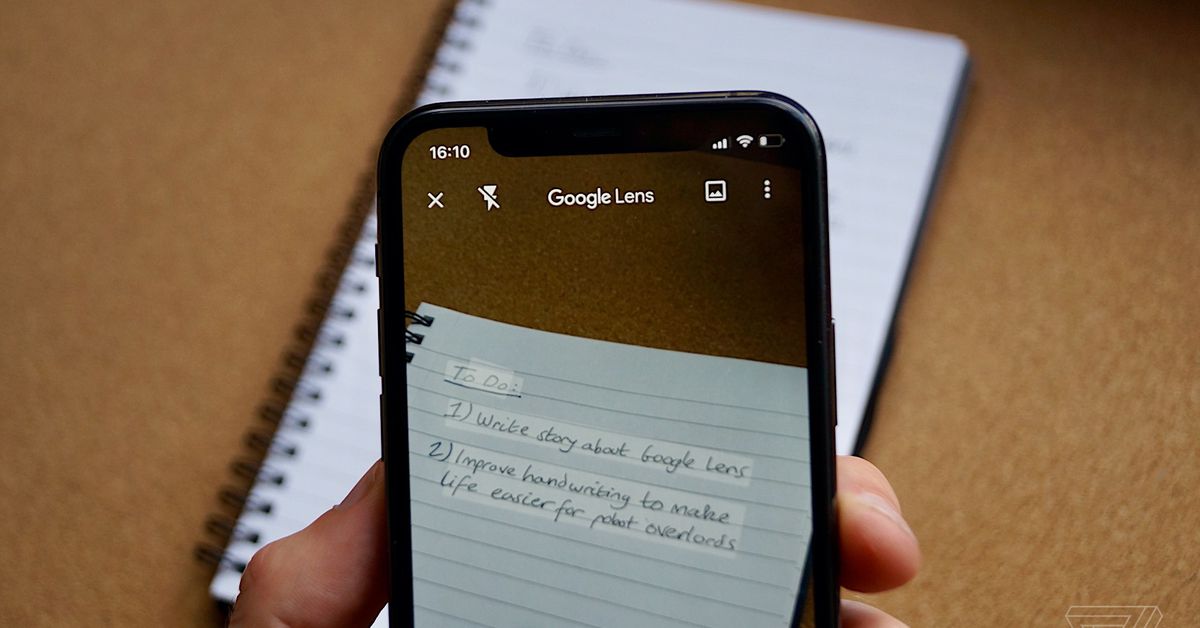 16:10
Google Lens
To Do:
1) Write story about Google Lens
2) Improve handwriting to make
life easier for robot overlords